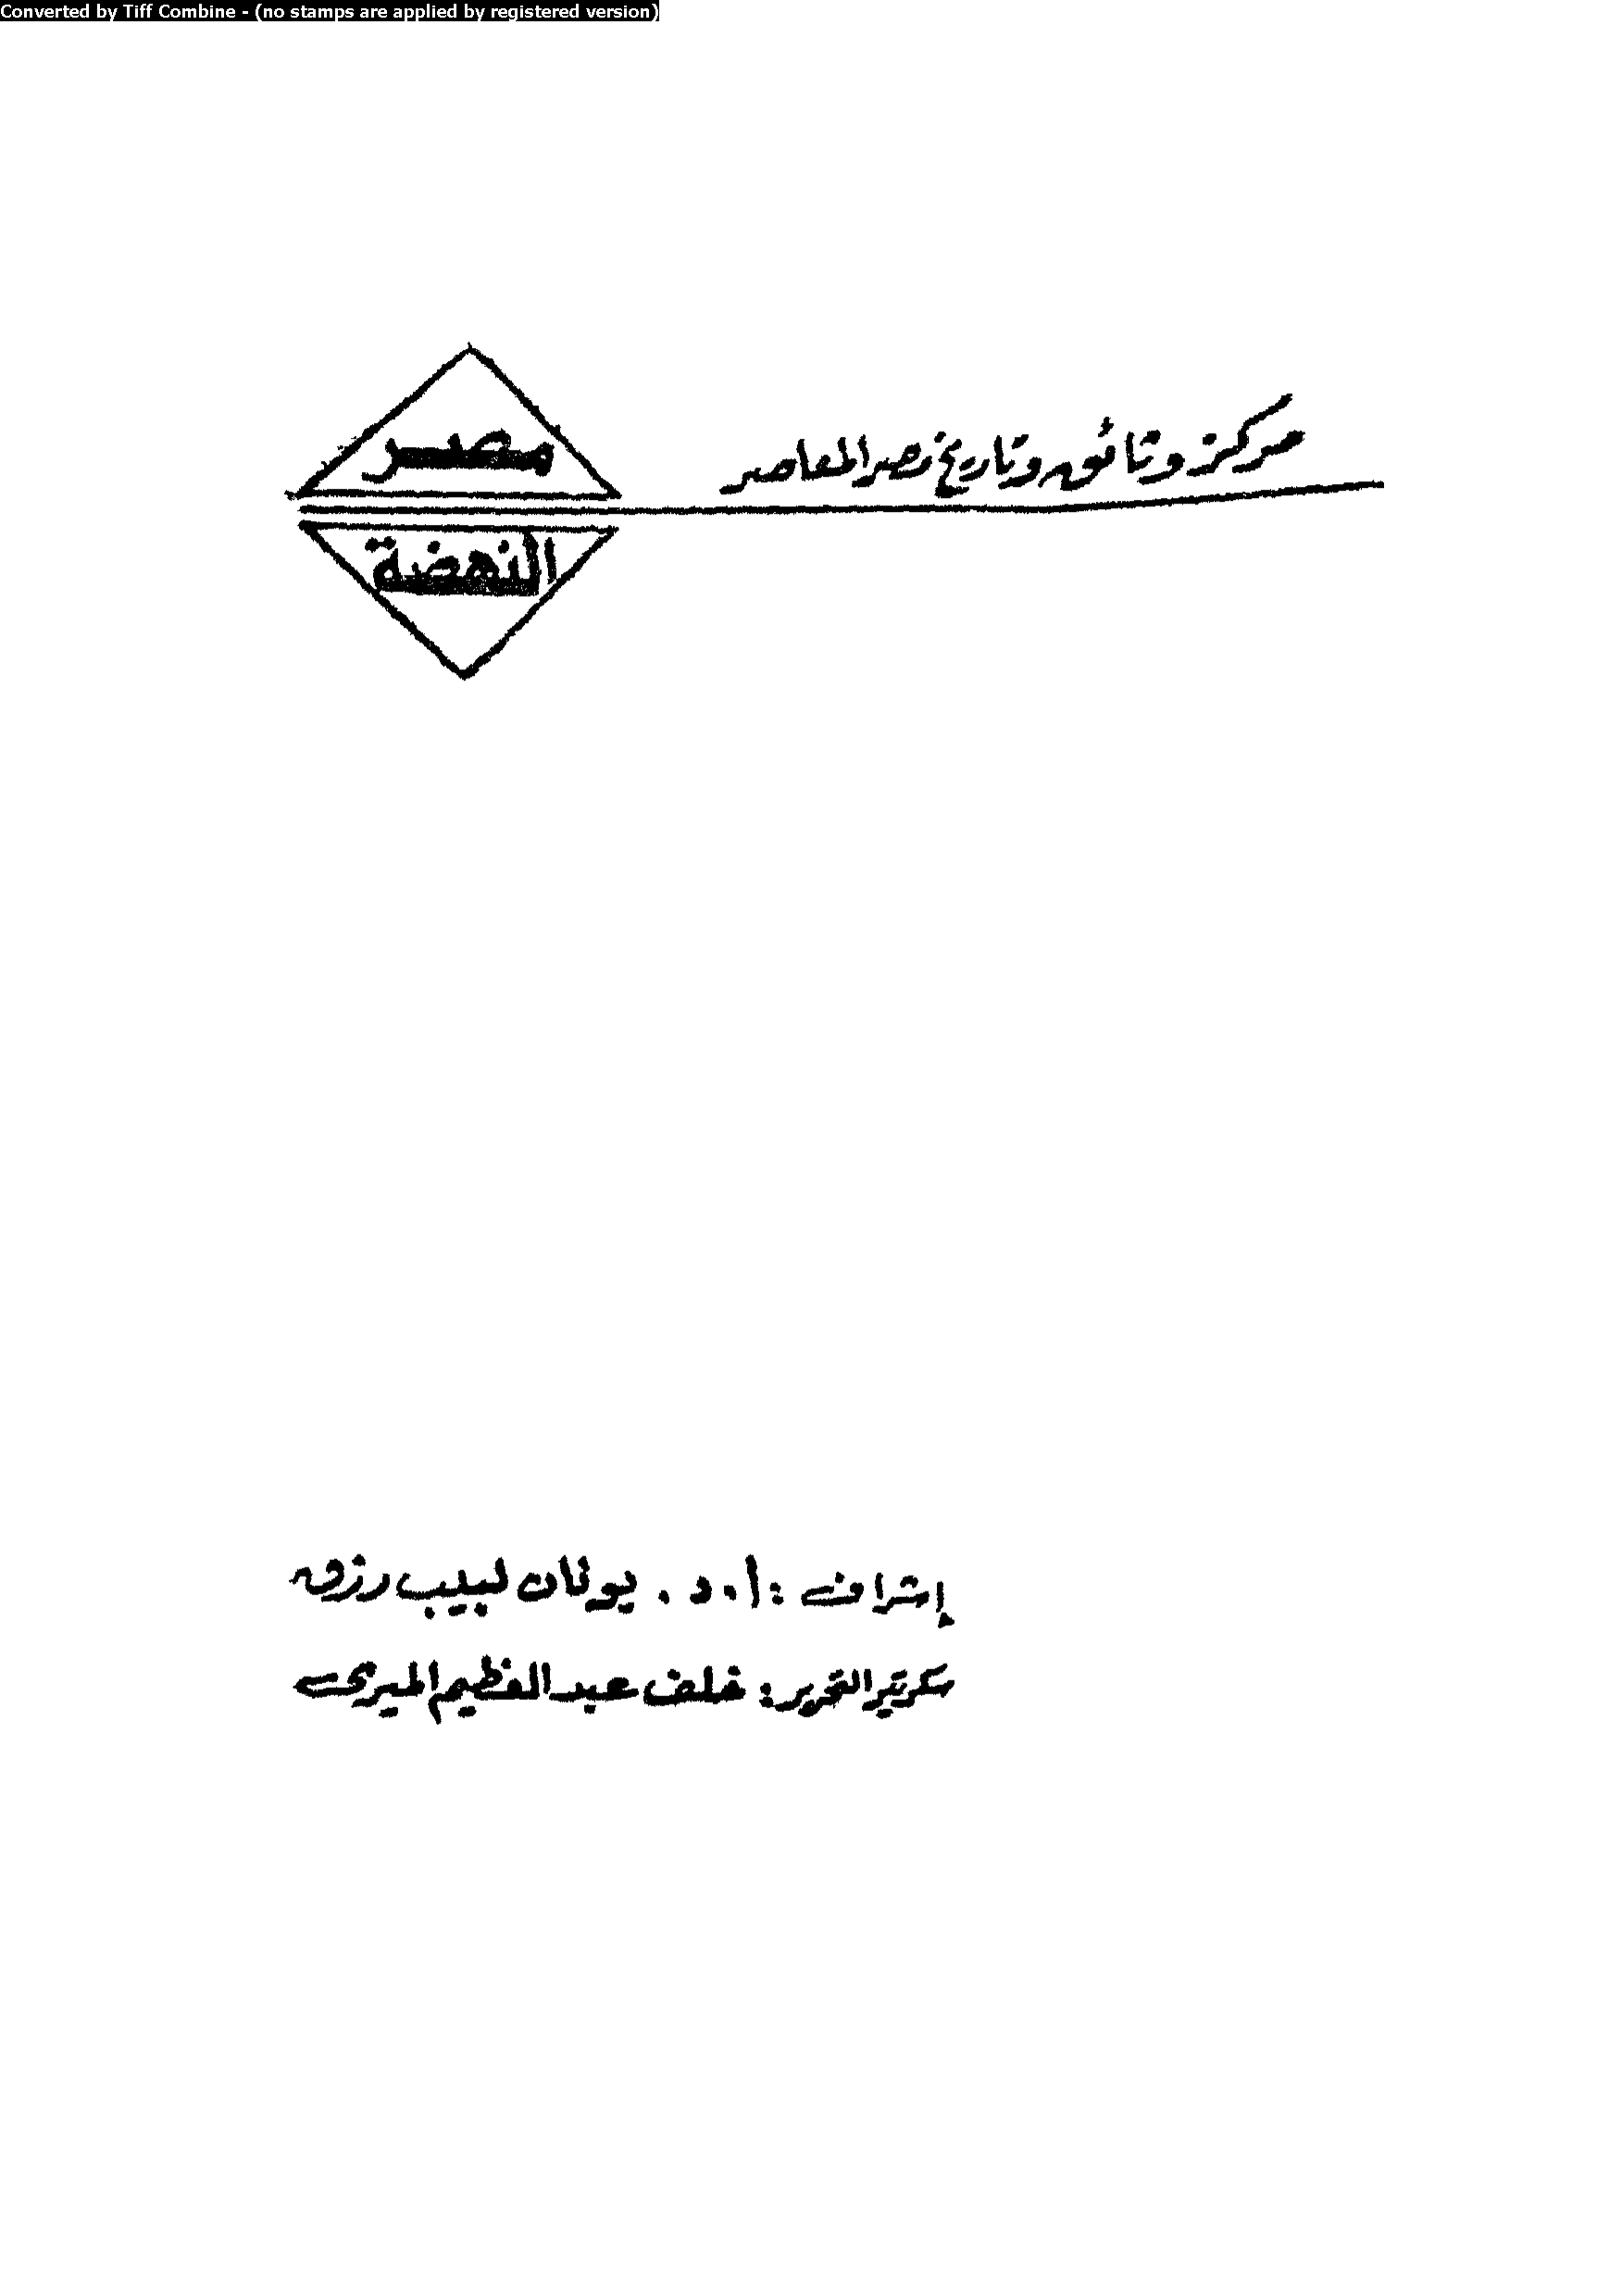 Converted by Tiff Combine - (no stamps are applied by registered version)
مركز وثائق وتاريخ مصر المعاصر
مصر
النهضة
إشراف : أ . د . يونان لبيب رزق
سكرتير التحرير : خلف عبد العظيم الميرى